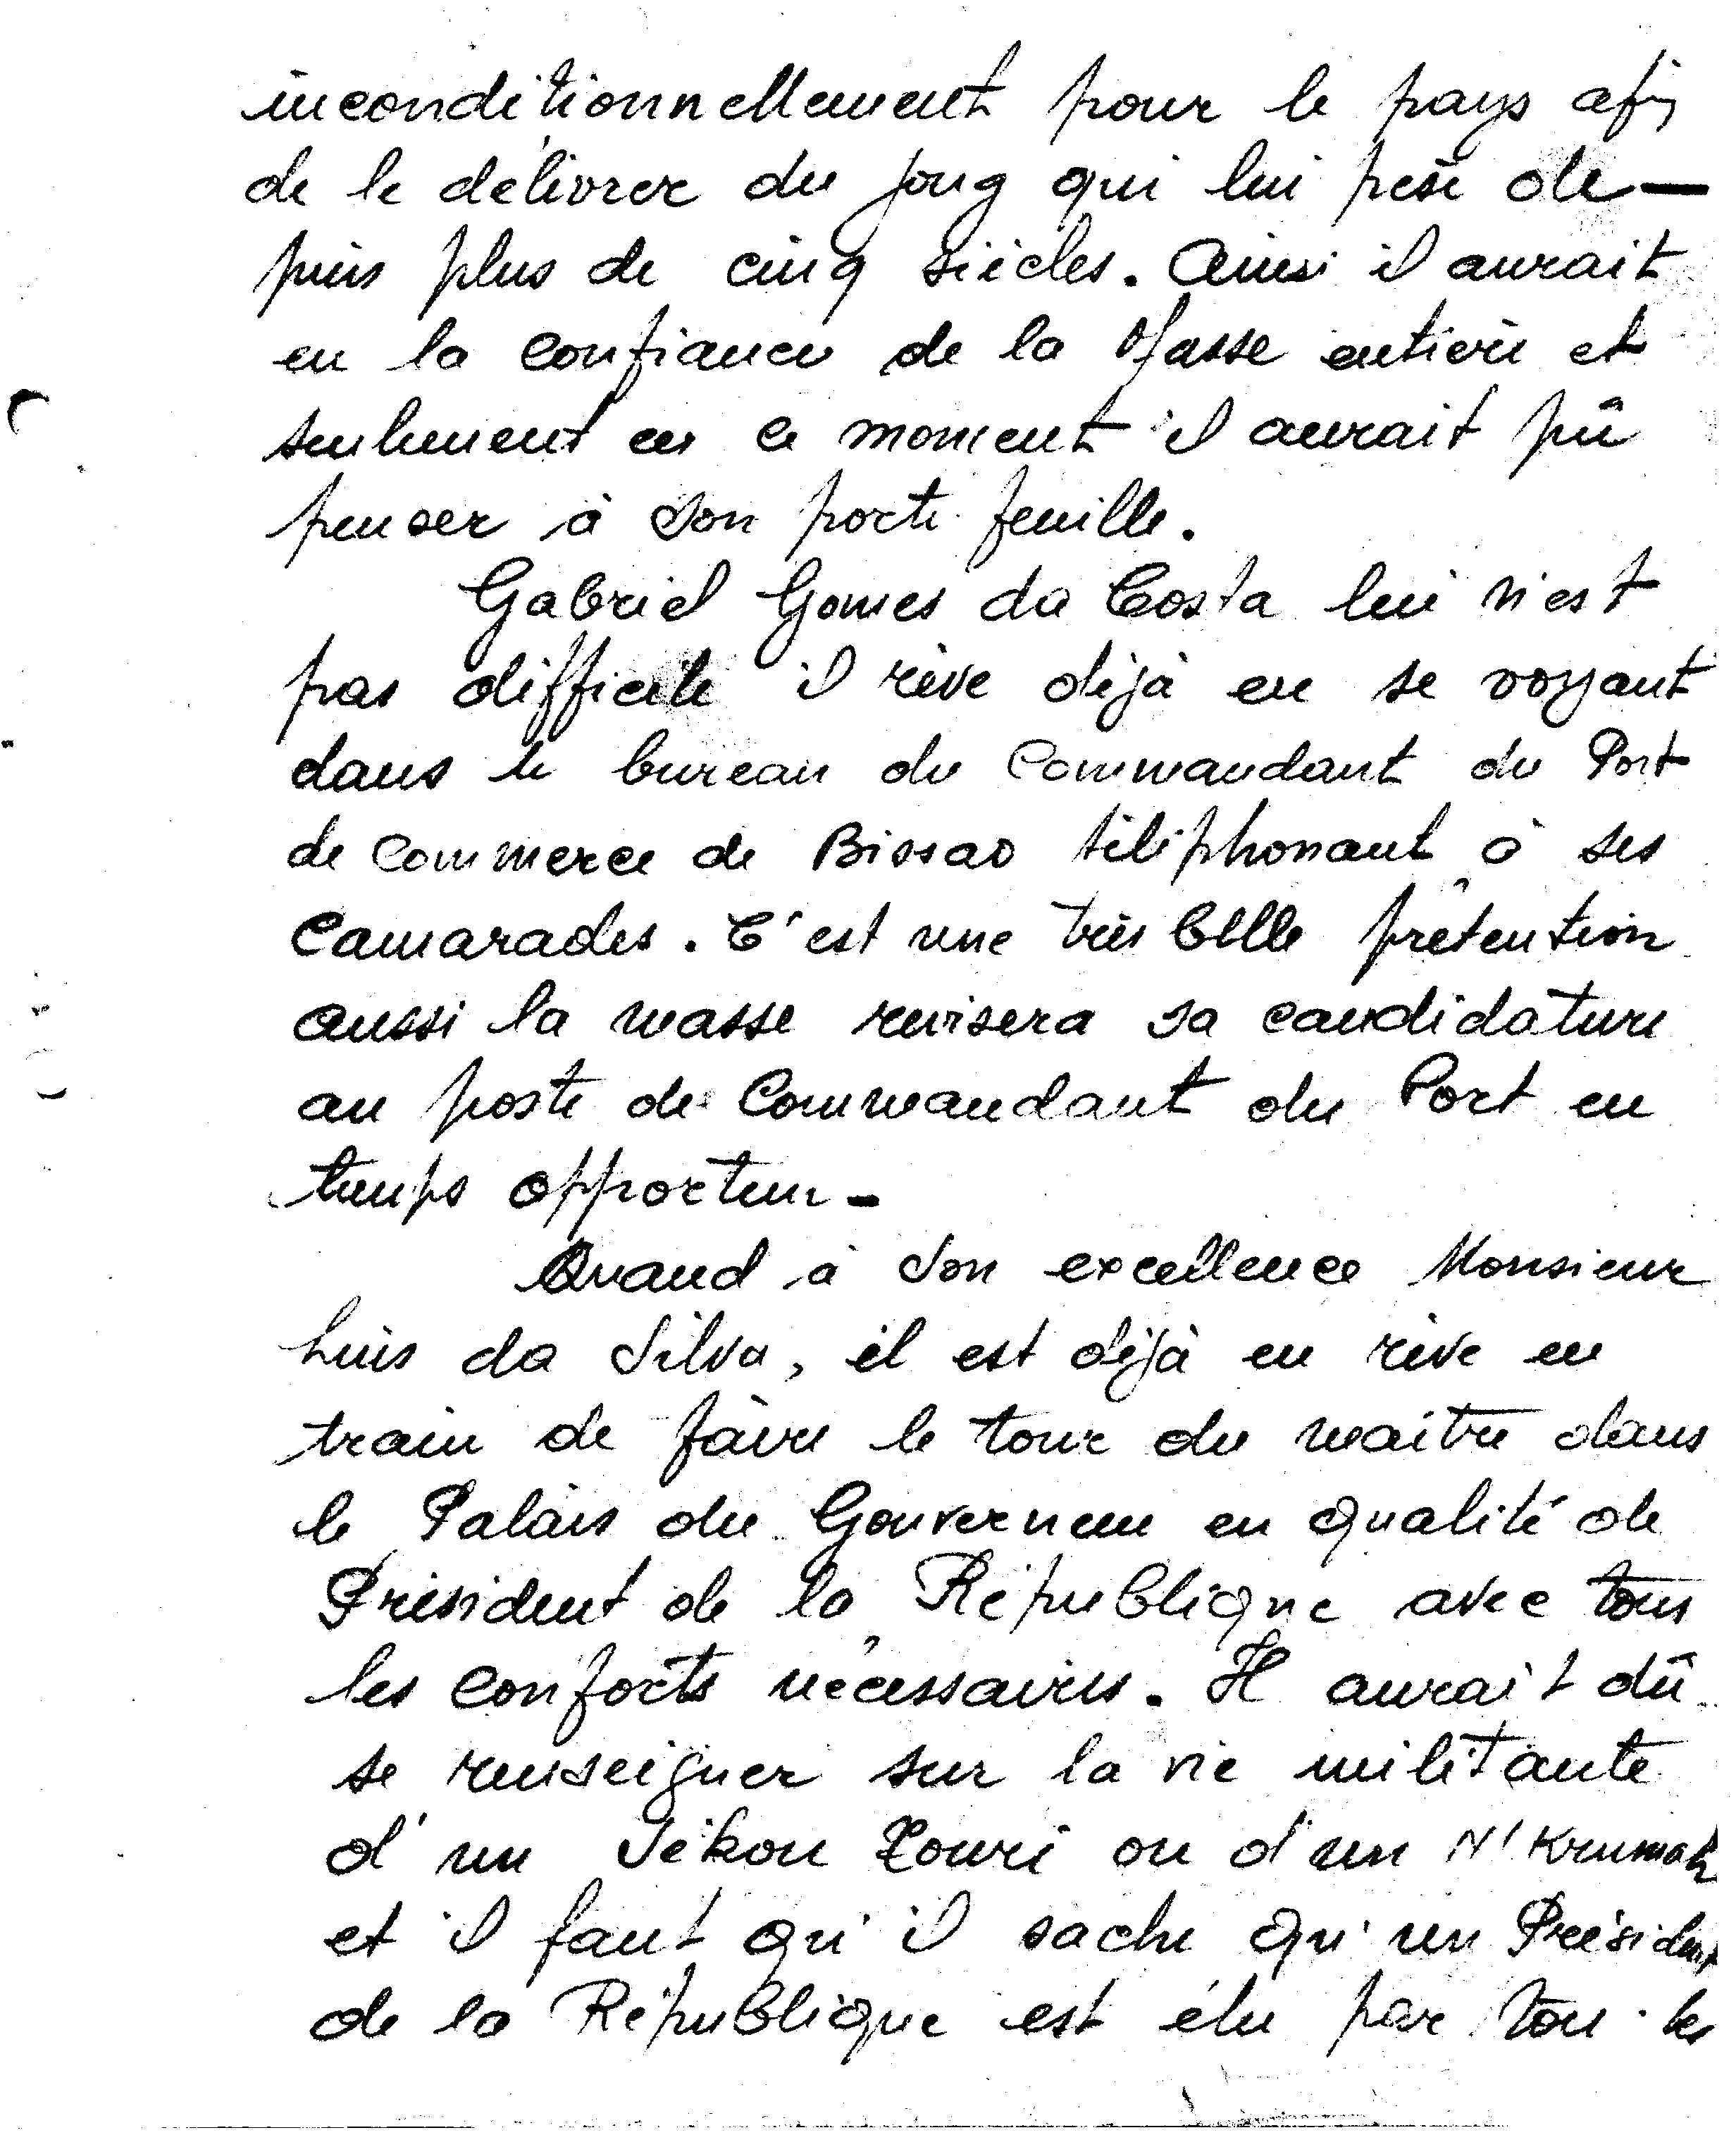 inconditionnellement pour le pays afin
de le délivrer du joug qui lui pèse de-
puis plus de cinq siècles. Ainsi il aurait
eu la confiance de la Masse entière et
seulement en ce moment il aurait pû
penser à son porte-feuille.
Gabriel Gomes da Costa lui n'est
pas difficile il rêve déjà en se voyant
dans le bureau du Commandant du Port
de Commerce de Bissao téléphonant à ses
Camarades. C'est une très belle prétention
aussi la masse revisera sa candidature
au poste de Commandant du Port en
temps opportun-
Quand à Son excellence Monsieur
Luis da Silva, il est déjà en rêve en
train de faire le tour du maître dans
le Palais du Gouverneur en qualité de
Président de la République avec tous
les conforts nécessaires. Il aurait dû
se renseigner sur la vie militante
d'un Sékou Touré ou d'un N'Krumah
et il faut qu'il sache qu'un Président
de la République est élu par tous les